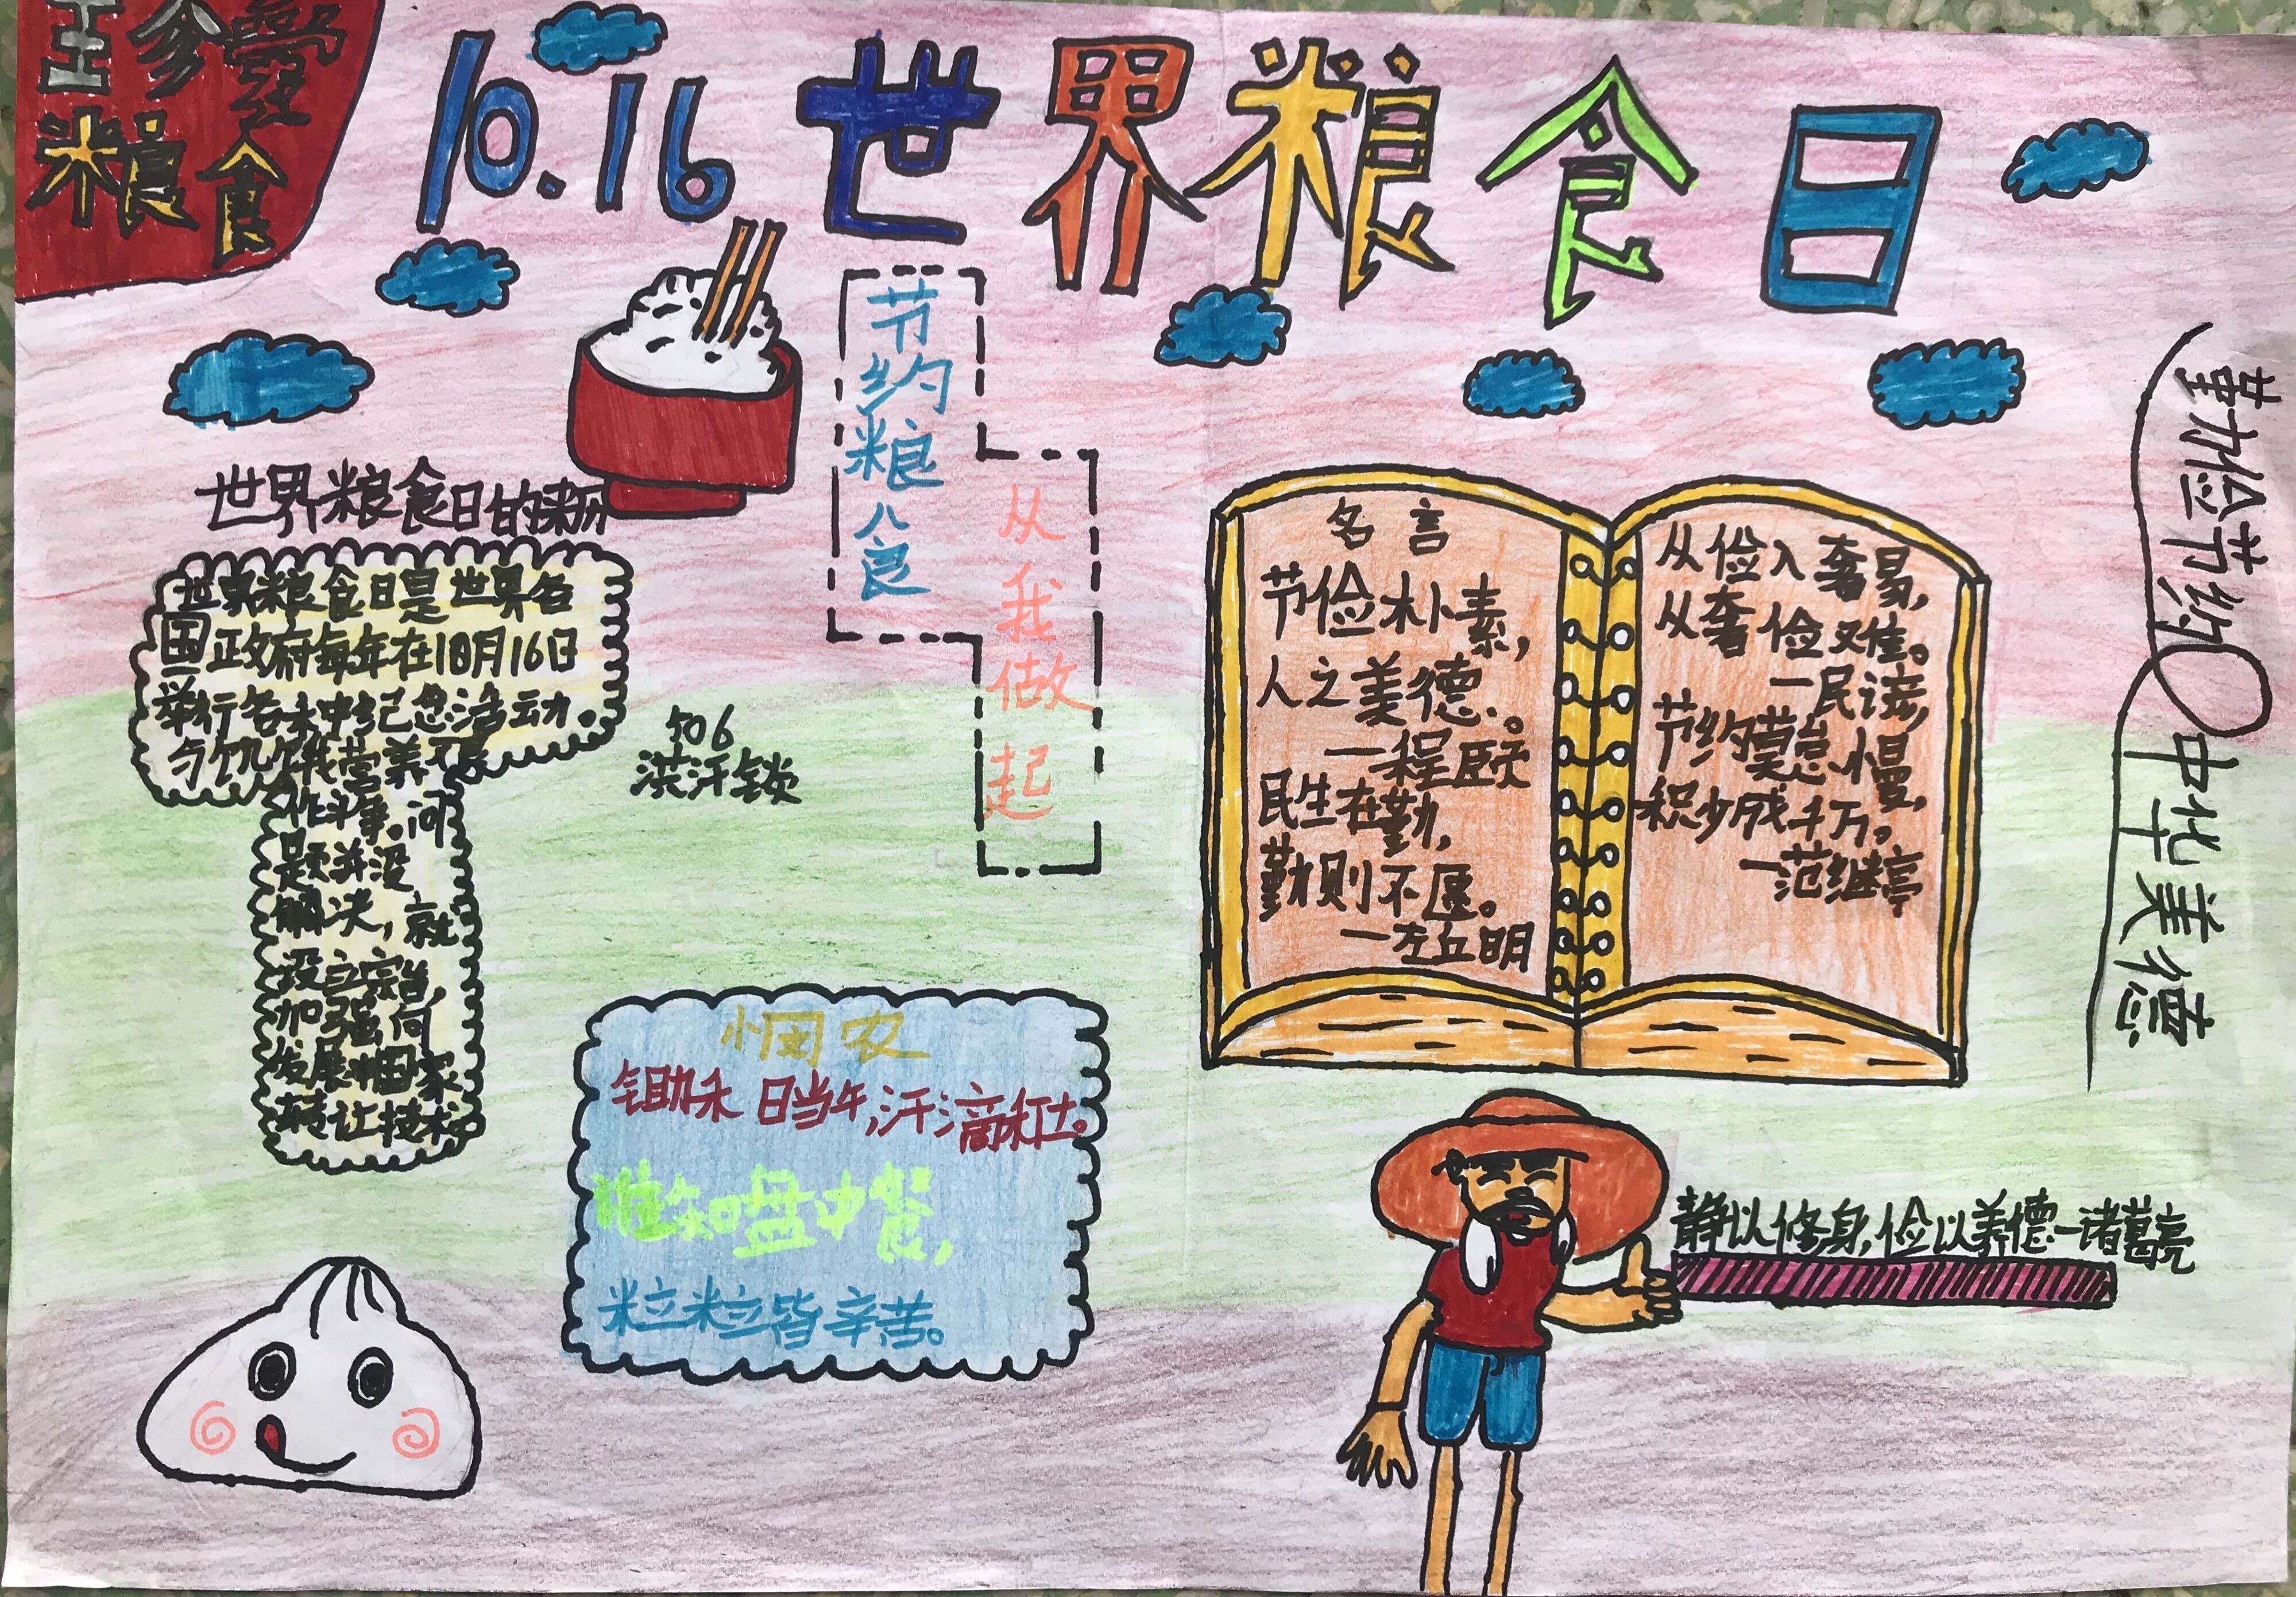 珍爱
粮食
10.16 世界粮食日
节约粮食
从我做起
世界粮食日的来历
世界粮食日是世界各
国政府每年在10月16日
举行各未中纪念活动。
与饥饿营养不良
作斗争。问
题并没
解决，就
设立宗旨，
加强向
发展中国家
转让技术
506
洪汗锬
名言
节俭朴素，
人之美德。
一程颐
民生在勤，
勤则不匮。
一左丘明
从俭入奢易，
从奢俭难。
一民谚
节约莫怠慢，
积少成千万。
一范继亭
勤俭节约
中华美德
悯农
锄禾日当午，汗滴禾土。
谁知盘中餐，
粒粒皆辛苦。
静以修身，俭以养德一诸葛亮